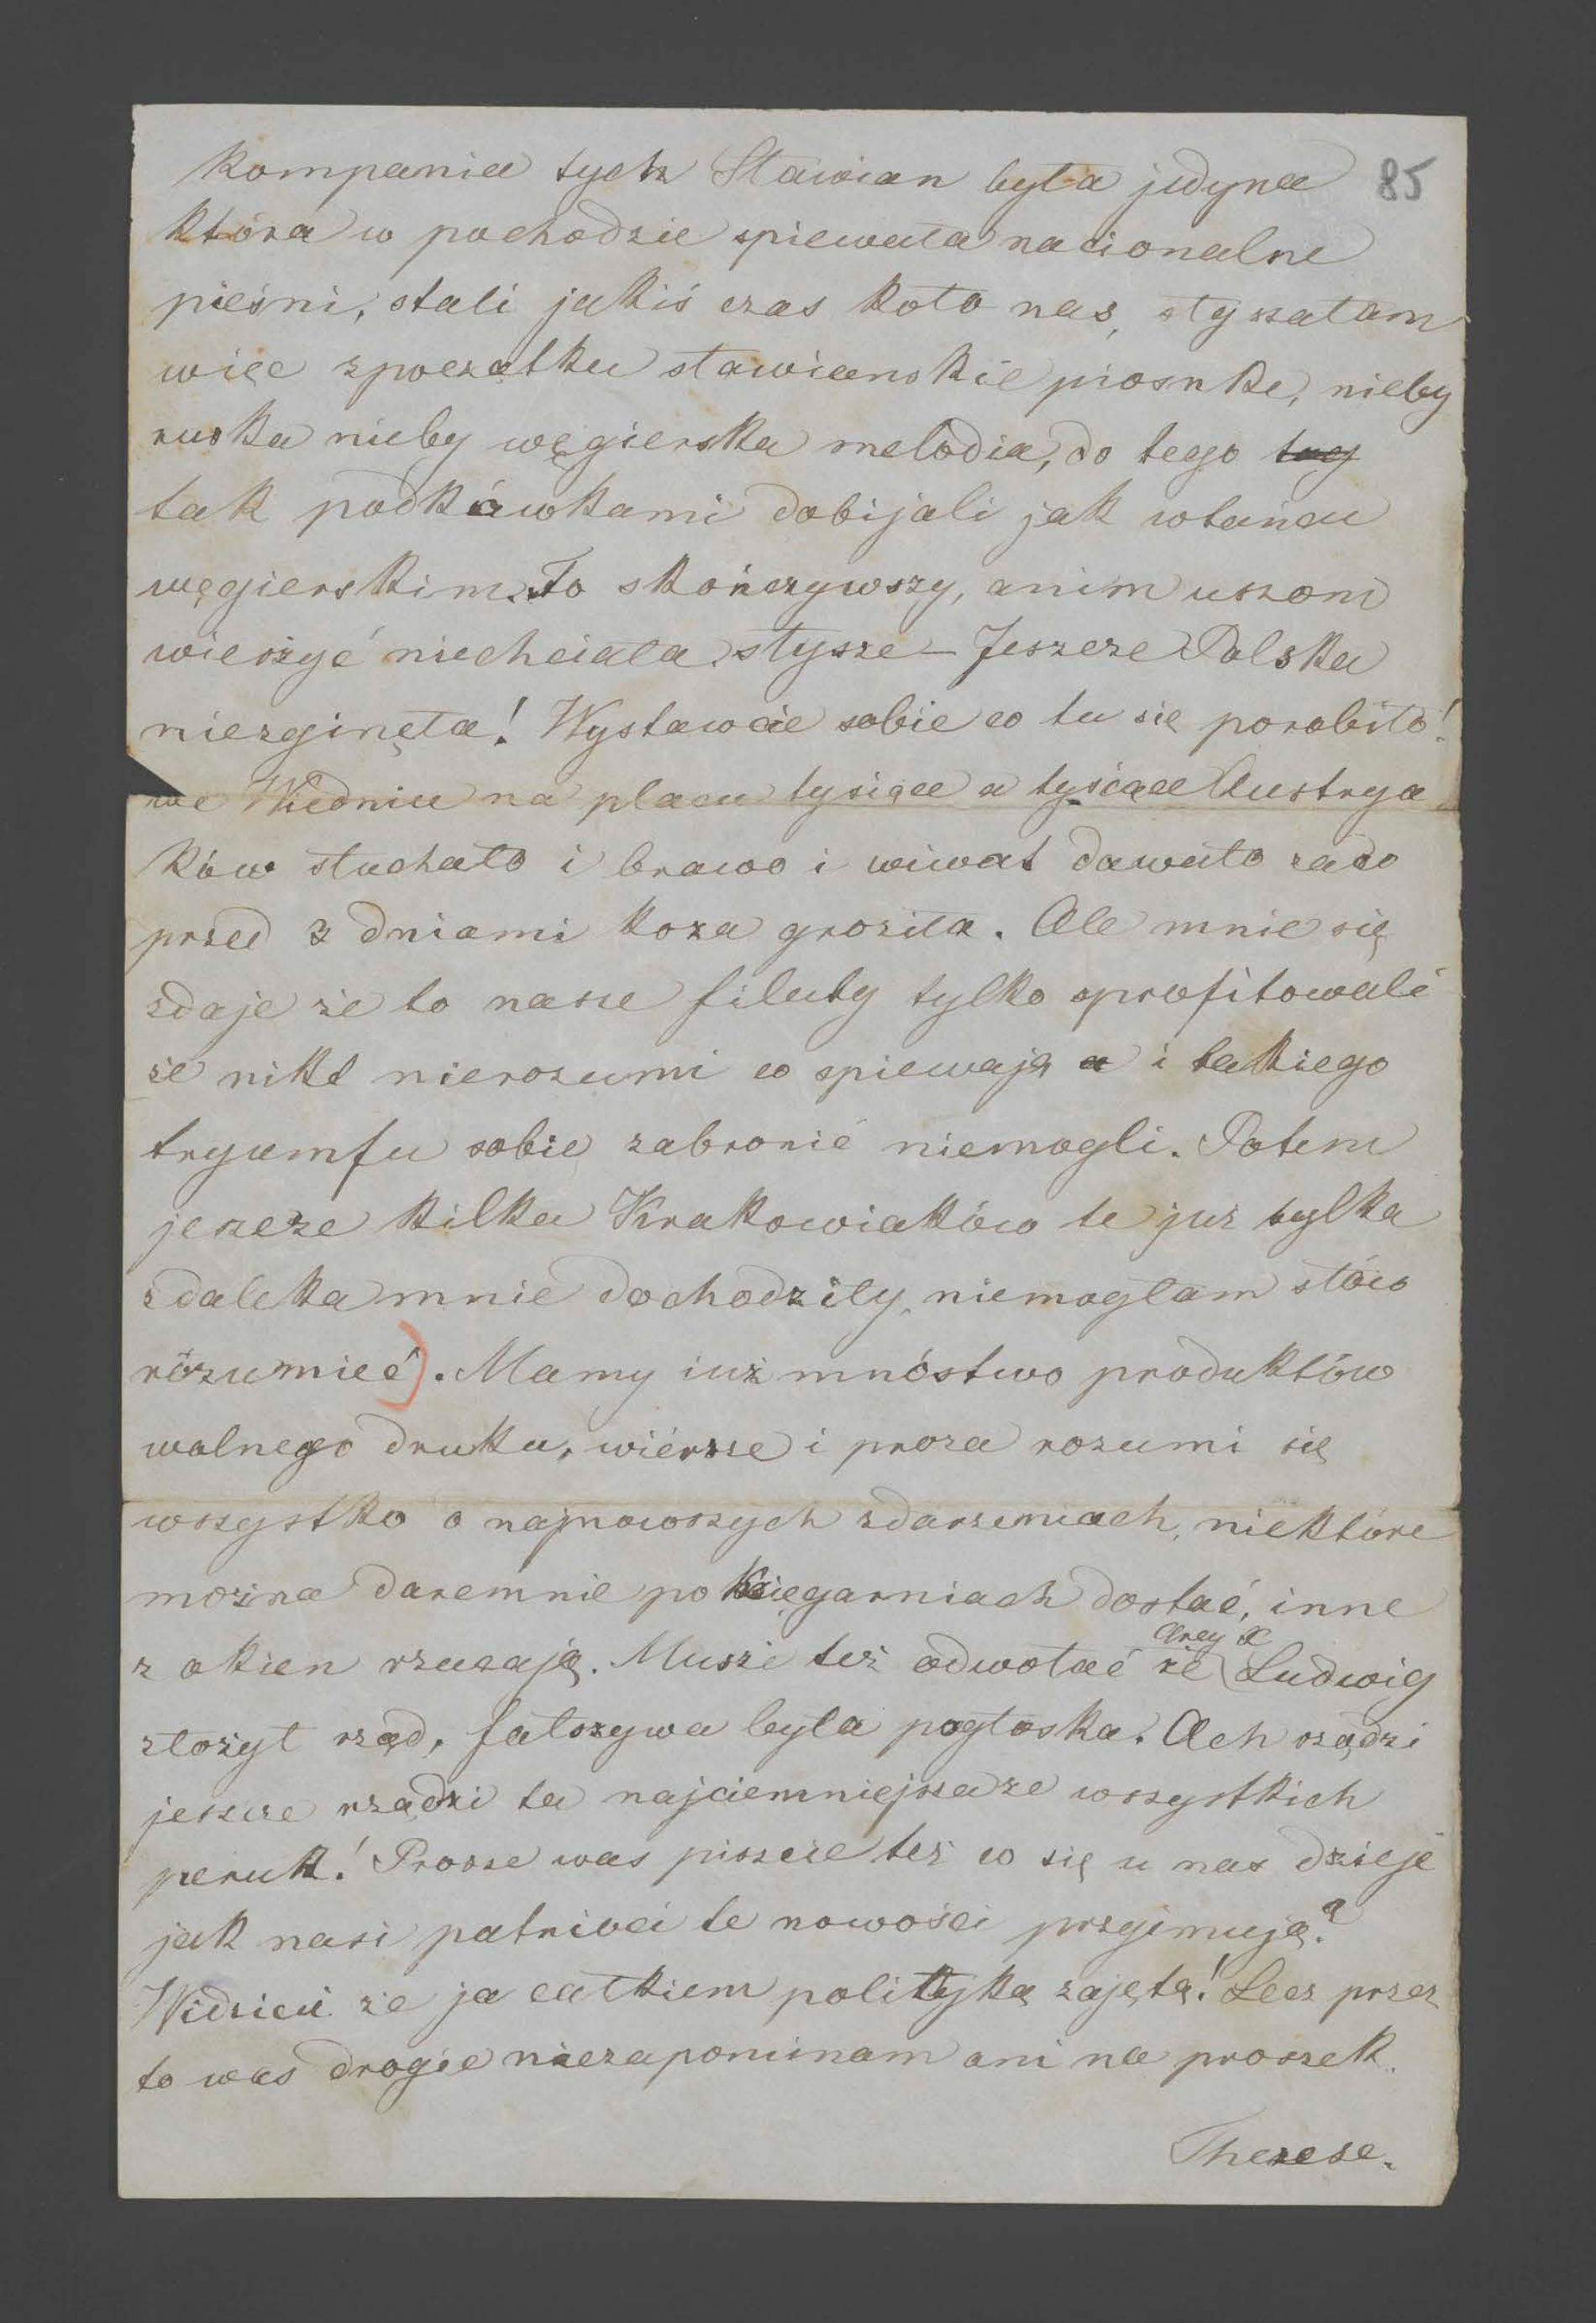 kompania tych Stawian była jedyna 85
która w pochodzie spiewała nacionalne
pieśni, stali jakiś czas koło nas, słyszałam
więc zpoczątku sławianskie piosnke, nieby
ruska nieby węgierska melodia, do tego tag
tak podkówkami dobijali jak wtańcu
węgierskim. To skończywszy, anim uszom
wierzyć niechciała słysze – Jeszcze Polska
niezginęła! Wystawcie sobie co tu się porobiło!
we Wiedniu na placu tysiące a tysiące Austrya
ków słuchało i brawo i wiwat dawało zaco
przed 3 dniami koza groziła. Ale mnie się
zdaje że to nasze filuty tylko sprofitowali
że nikt nierozumi co spiewają a i takiego
tryumfu sobie zabronić niemogli. Potem
jeszcze kilka Krakowiaków te już tylko
zdaleka mnie dochodziły, niemogłam słów
rozumieć). Mamy iuż mnóstwo produktów
wolnego druku, wiérsze i proza rozumi się
wszystko o najnowszych zdarzeniach, niektóre
można daremnie po księgarniach dostać, inne
z okien rzucają. Musze też odwołać że Arcy X Ludwig
złożył rząd, fałszywa była pogłoska. Ach rządzi
jeszcze rządzi ta najciemniejsza ze wszystkich
peruk! Prosze was piszcie też co się u nas dzieje
jak nasi patrioci te nowości przyjmują?
Widzicie że ja całkiem polityką zajęta! Lecz przez
to was drogie niezapominam ani na proszek.
Therese.